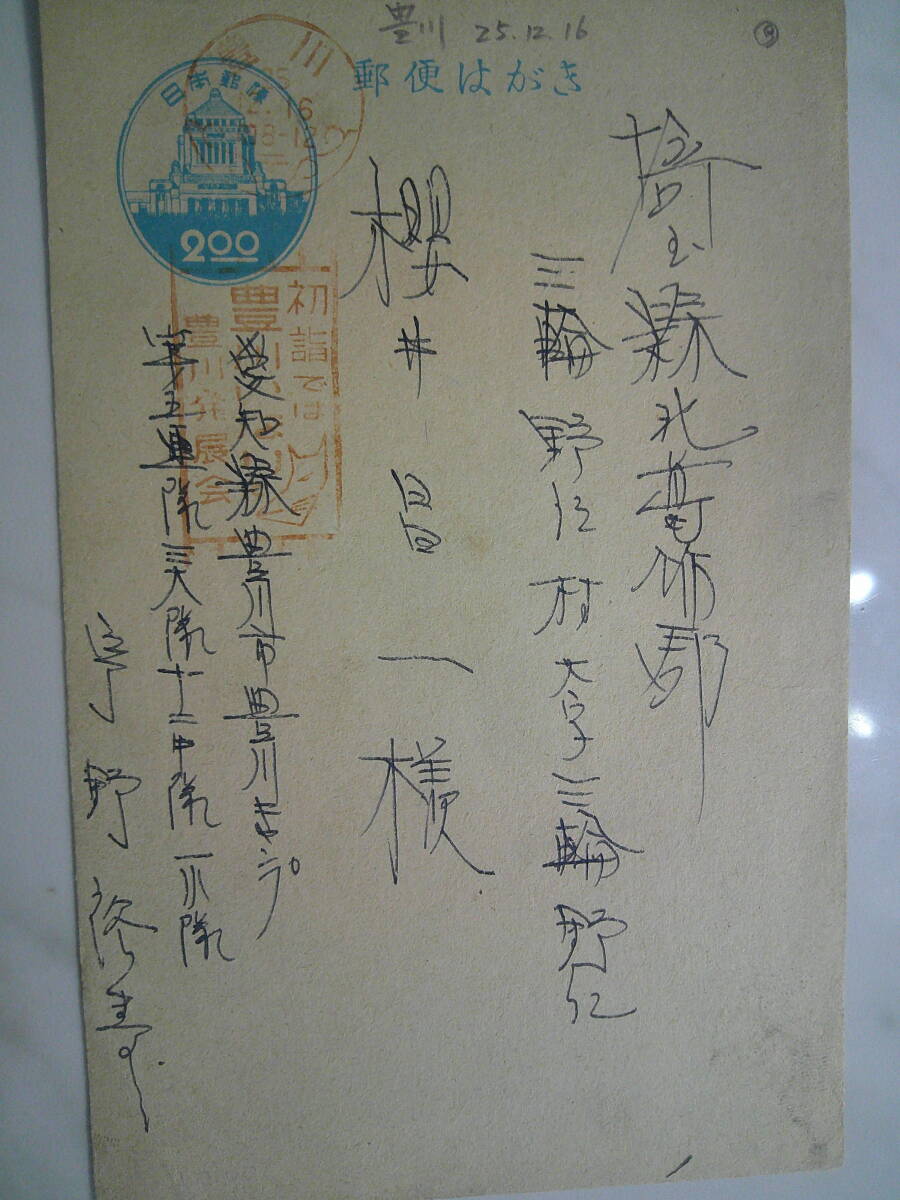 豊川 25.12.16
9
郵便はがき
豊川
25
12.16
日本郵便
2.00
埼玉縣北葛飾郡
三輪野江村大字三輪野江
櫻井昌一様
初詣では
豊川
豊川発展会
愛知縣豊川市豊川キャンプ
第五連隊三大隊十二中隊一小隊